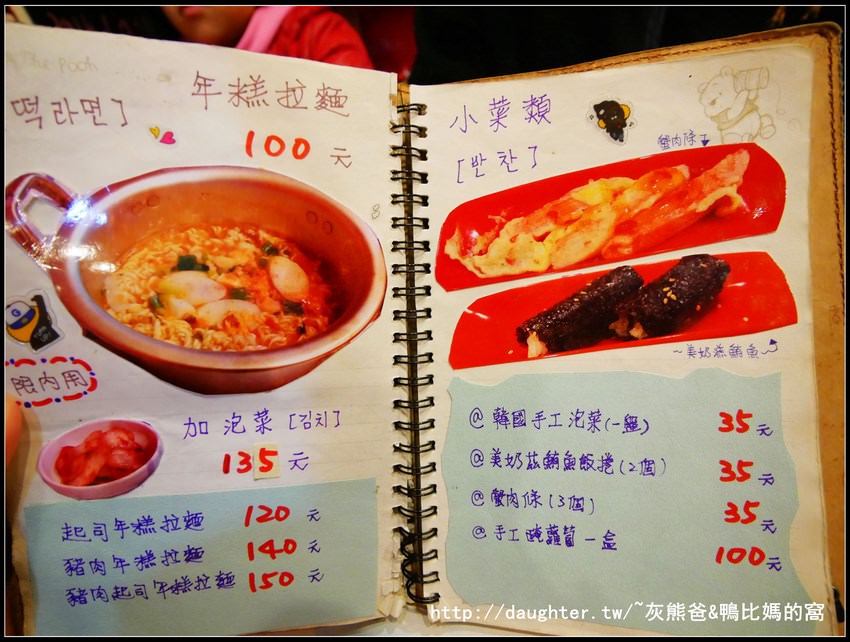 떡라면]
年糕拉麵
100 元
限內用
加 泡菜 [김치]
135 元
起司年糕拉麵 120 元
豬肉年糕拉麵 140 元
豬肉起司年糕拉麵 150 元
小菜類
[반찬]
蟹肉條
~美奶滋鮪魚~
@ 韓國手工泡菜(一盤) 35元
@ 美奶茲鮪魚飯捲(2個) 35元
@ 蟹肉條(3個) 35元
@ 手工醃蘿蔔 一盒 100元
http://daughter.tw/~灰熊爸&鴨比媽的窩